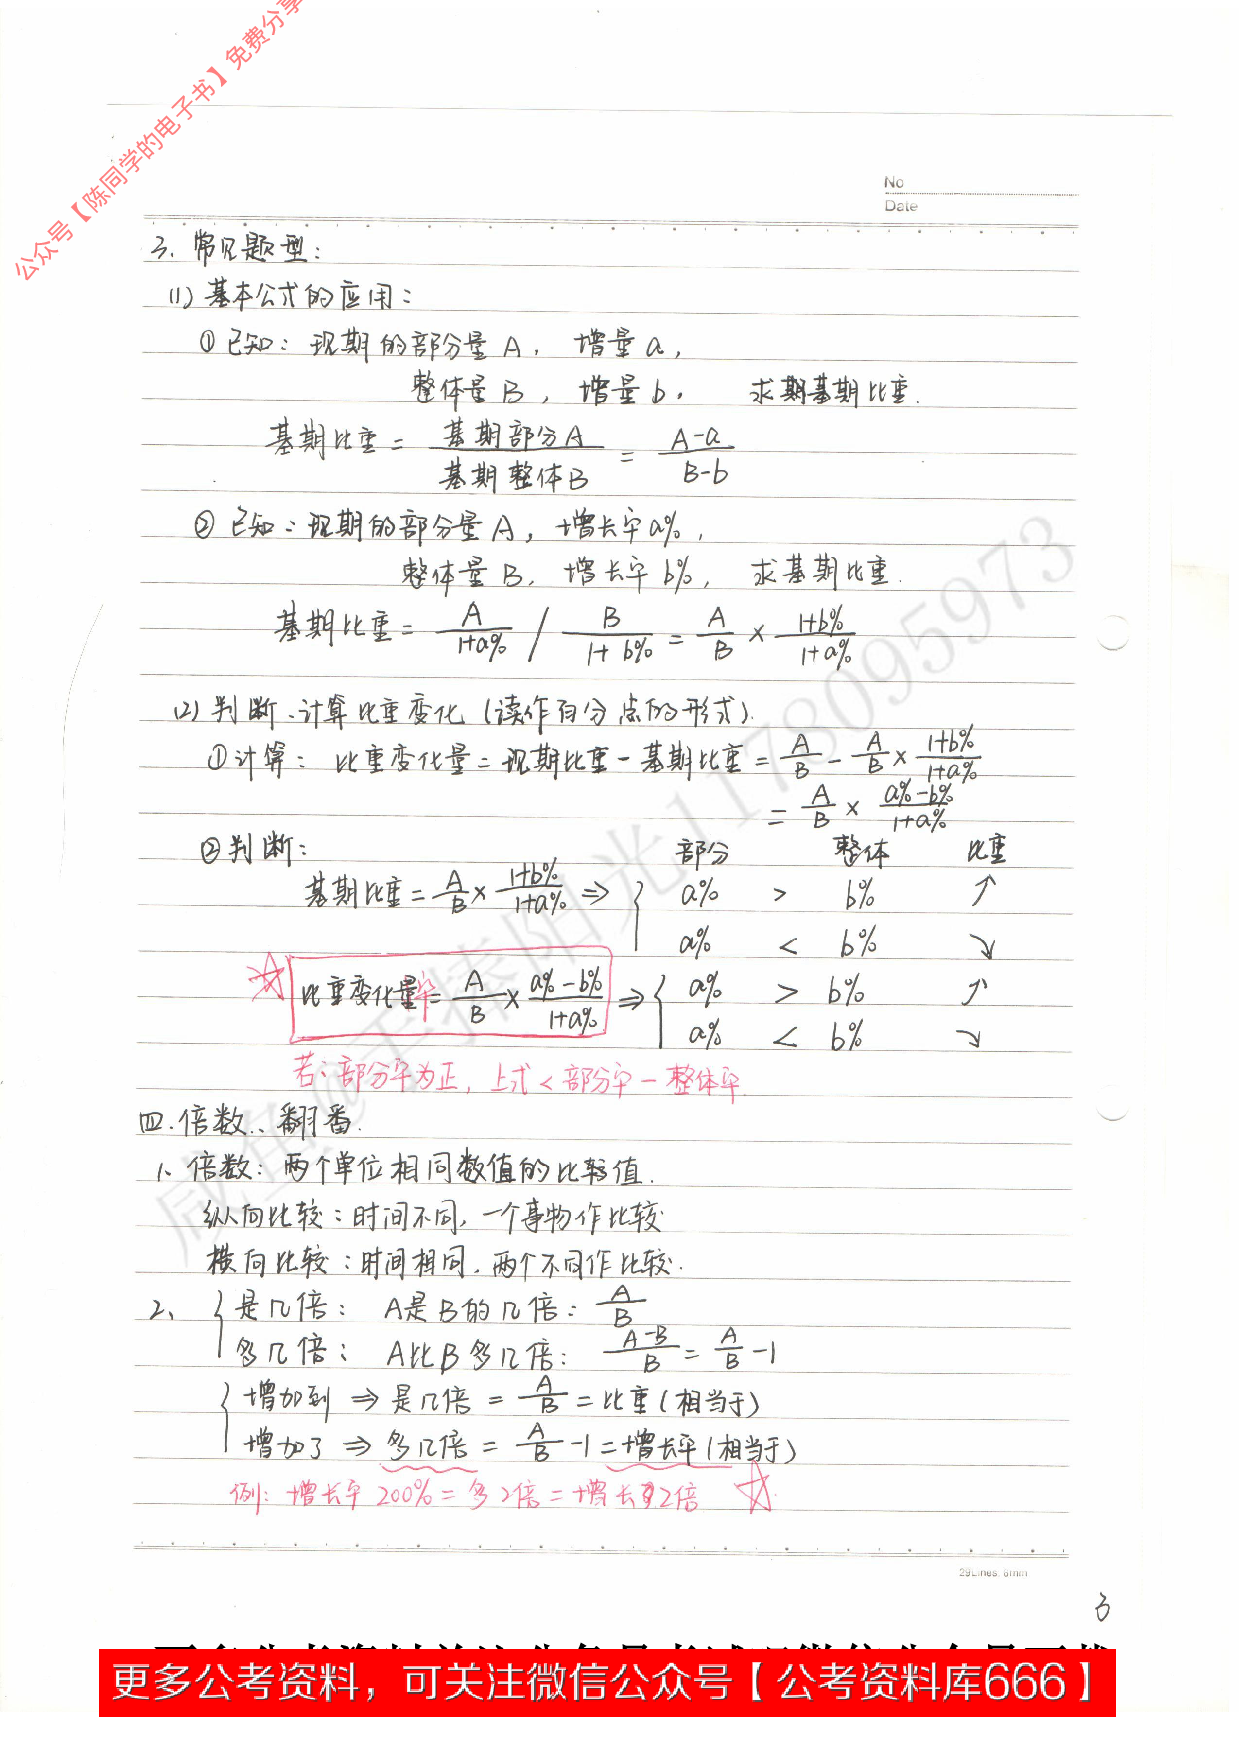 公众号【陈同学的电子书】免费分享
No
Date
3、常见题型：
(1)基本公式的应用：
①已知：现期的部分量A，增量a，
整体量B，增量b， 求期基期比重.
基期比重 = 基期部分A / 基期整体B = A-a / B-b
②已知：现期的部分量A，增长率a%，
整体量B，增长率b%， 求基期比重.
基期比重 = A/1+a% / B/1+b% = A/B × 1+b%/1+a%
(2)判断、计算比重变化（读作百分点的形式）.
①计算：比重变化量 = 现期比重 - 基期比重 = A/B - A/B × 1+b%/1+a%
= A/B × a%-b%/1+a%
②判断： 部分 整体 比重
基期比重 = A/B × 1+b%/1+a% ⇒ { a% > b% ↗
a% < b% ↘
☆ 比重变化量 = A/B × a%-b%/1+a% ⇒ { a% > b% ↗
a% < b% ↘
若：部分率为正，上式 < 部分率 - 整体率
四.倍数、翻番.
1、倍数：两个单位相同数值的比较值.
纵向比较：时间不同，一个事物作比较
横向比较：时间相同，两个不同作比较.
2、{ 是几倍： A是B的几倍： A/B
多几倍： A比B多几倍： A-B/B = A/B -1
{ 增加到 ⇒ 是几倍 = A/B = 比重（相当于）
增加了 ⇒ 多几倍 = A/B -1 = 增长率（相当于）
例：增长率200% = 多2倍 = 增长了2倍 ☆
29Lines. 8mm
3
更多公考资料，可关注微信公众号【公考资料库666】
咸鱼@手捧阳光1178095973